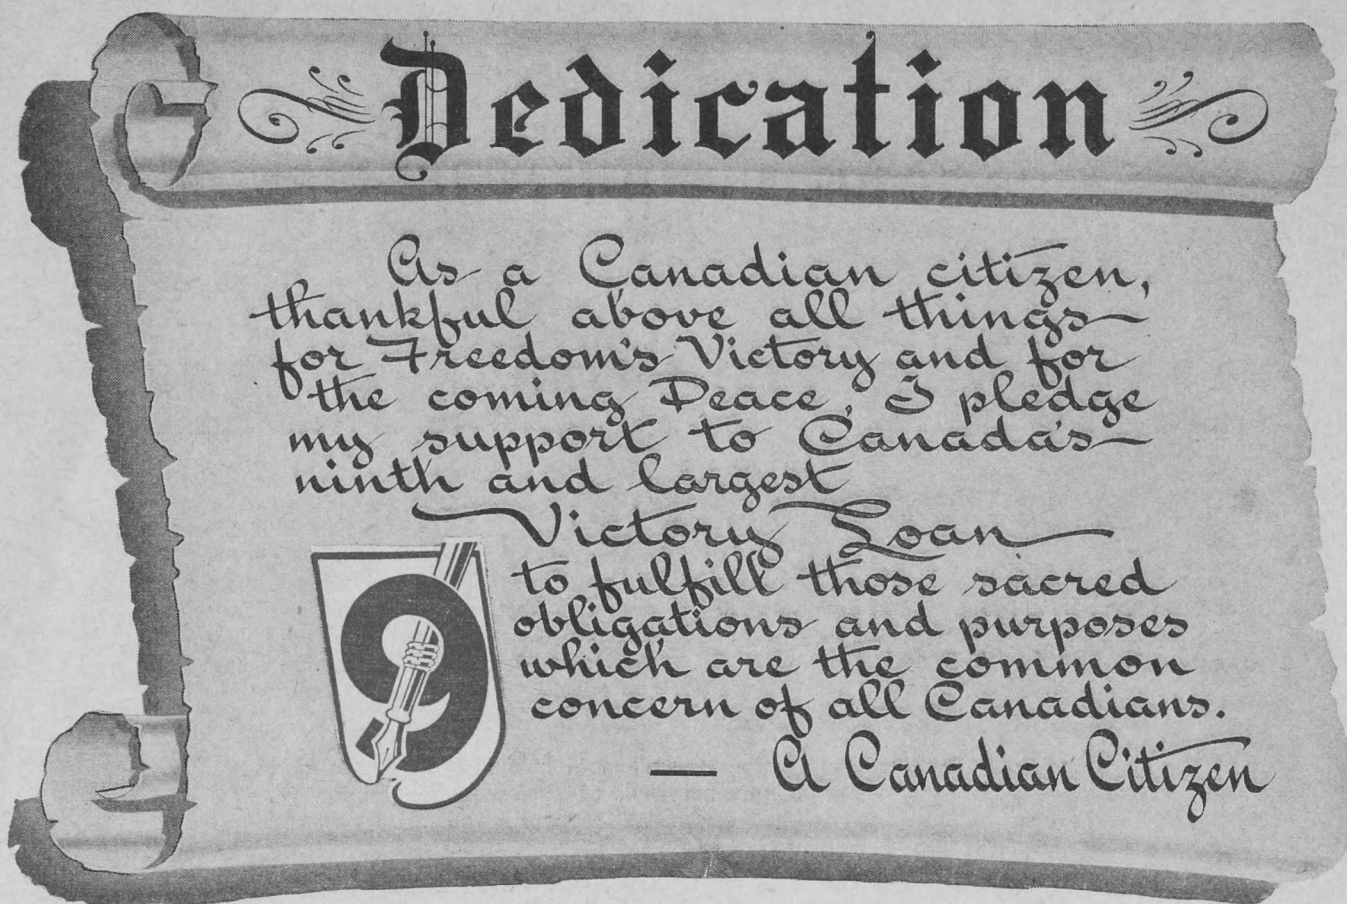 Dedication
As a Canadian citizen,
thankful above all things
for Freedom's Victory and for
the coming Peace, I pledge
my support to Canada's
ninth and largest
Victory Loan
to fulfill those sacred
obligations and purposes
which are the common
concern of all Canadians.
9
— A Canadian Citizen